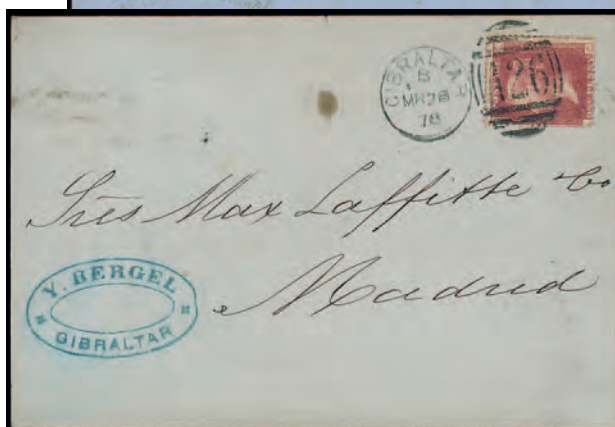 GIBRALTAR
B
MR 28
78
A26
Sres Max Laffitte & Co
Madrid
Y. BERGEL
GIBRALTAR